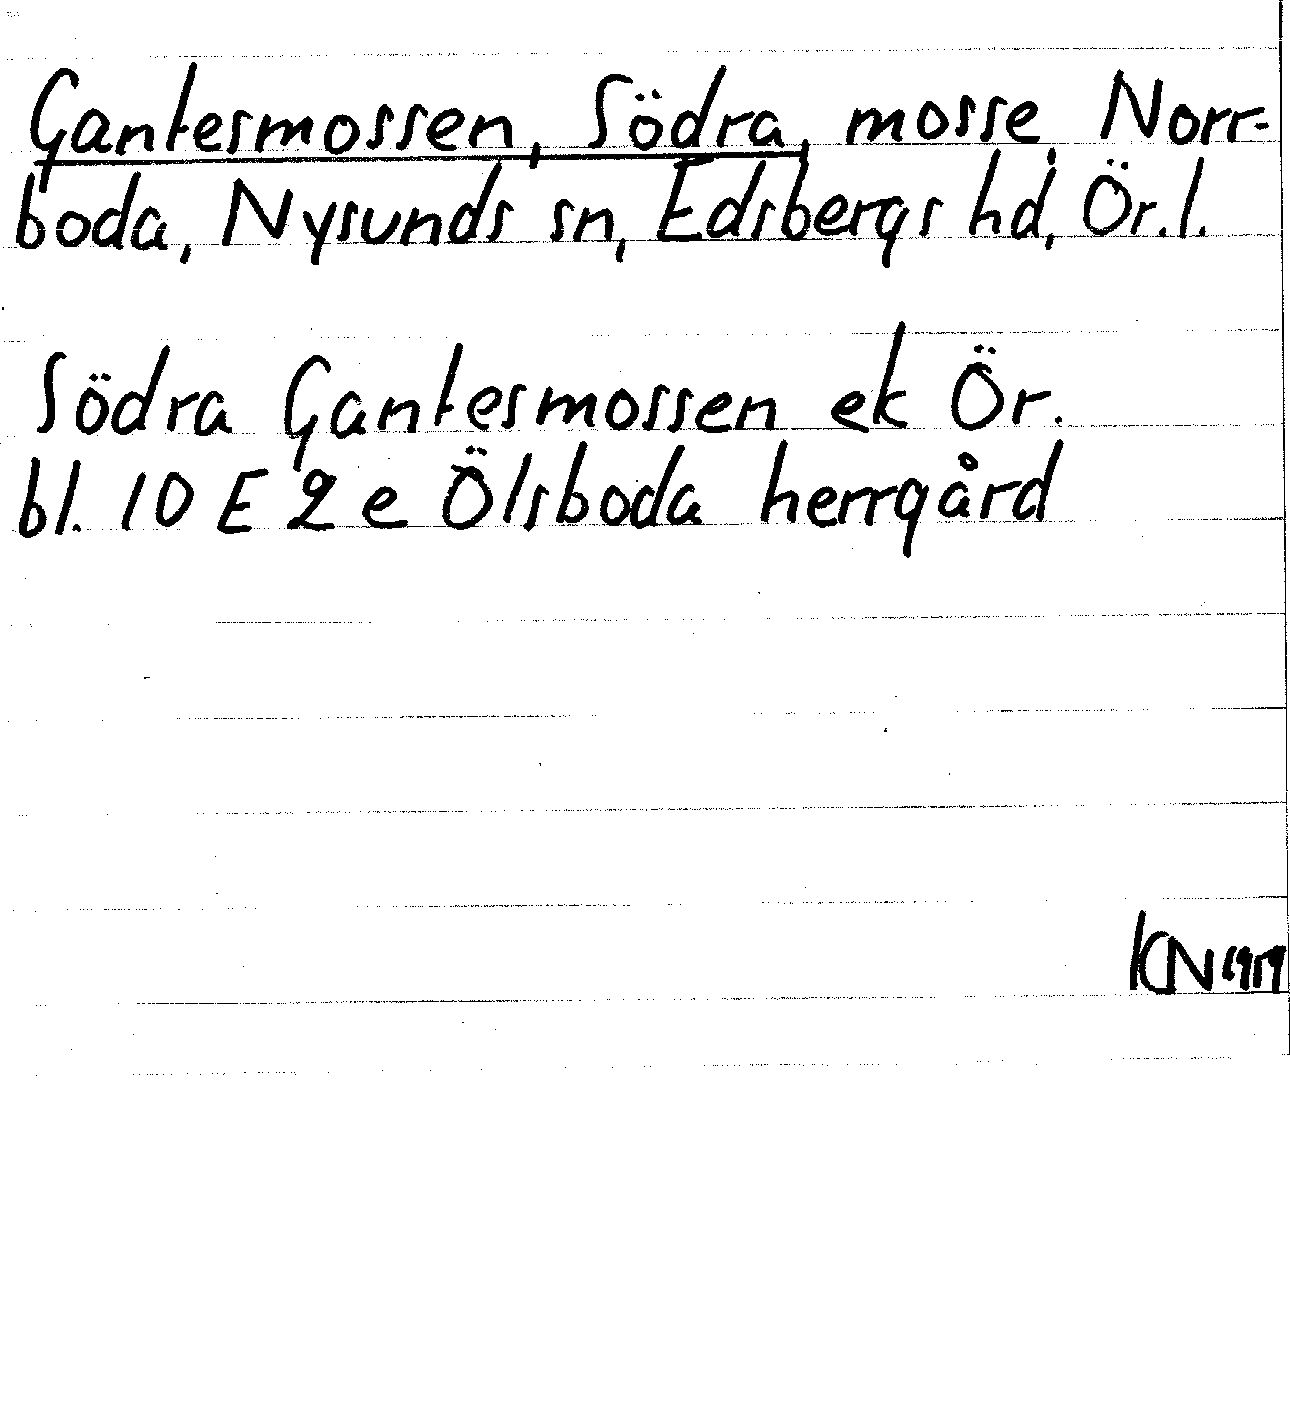 Gantesmossen, Södra, mosse, Norr-
boda, Nysunds sn, Edsbergs hd, Ör.l.
Södra Gantesmossen ek Ör.
bl. 10 E 2 e Ölsboda herrgård
KN 1959